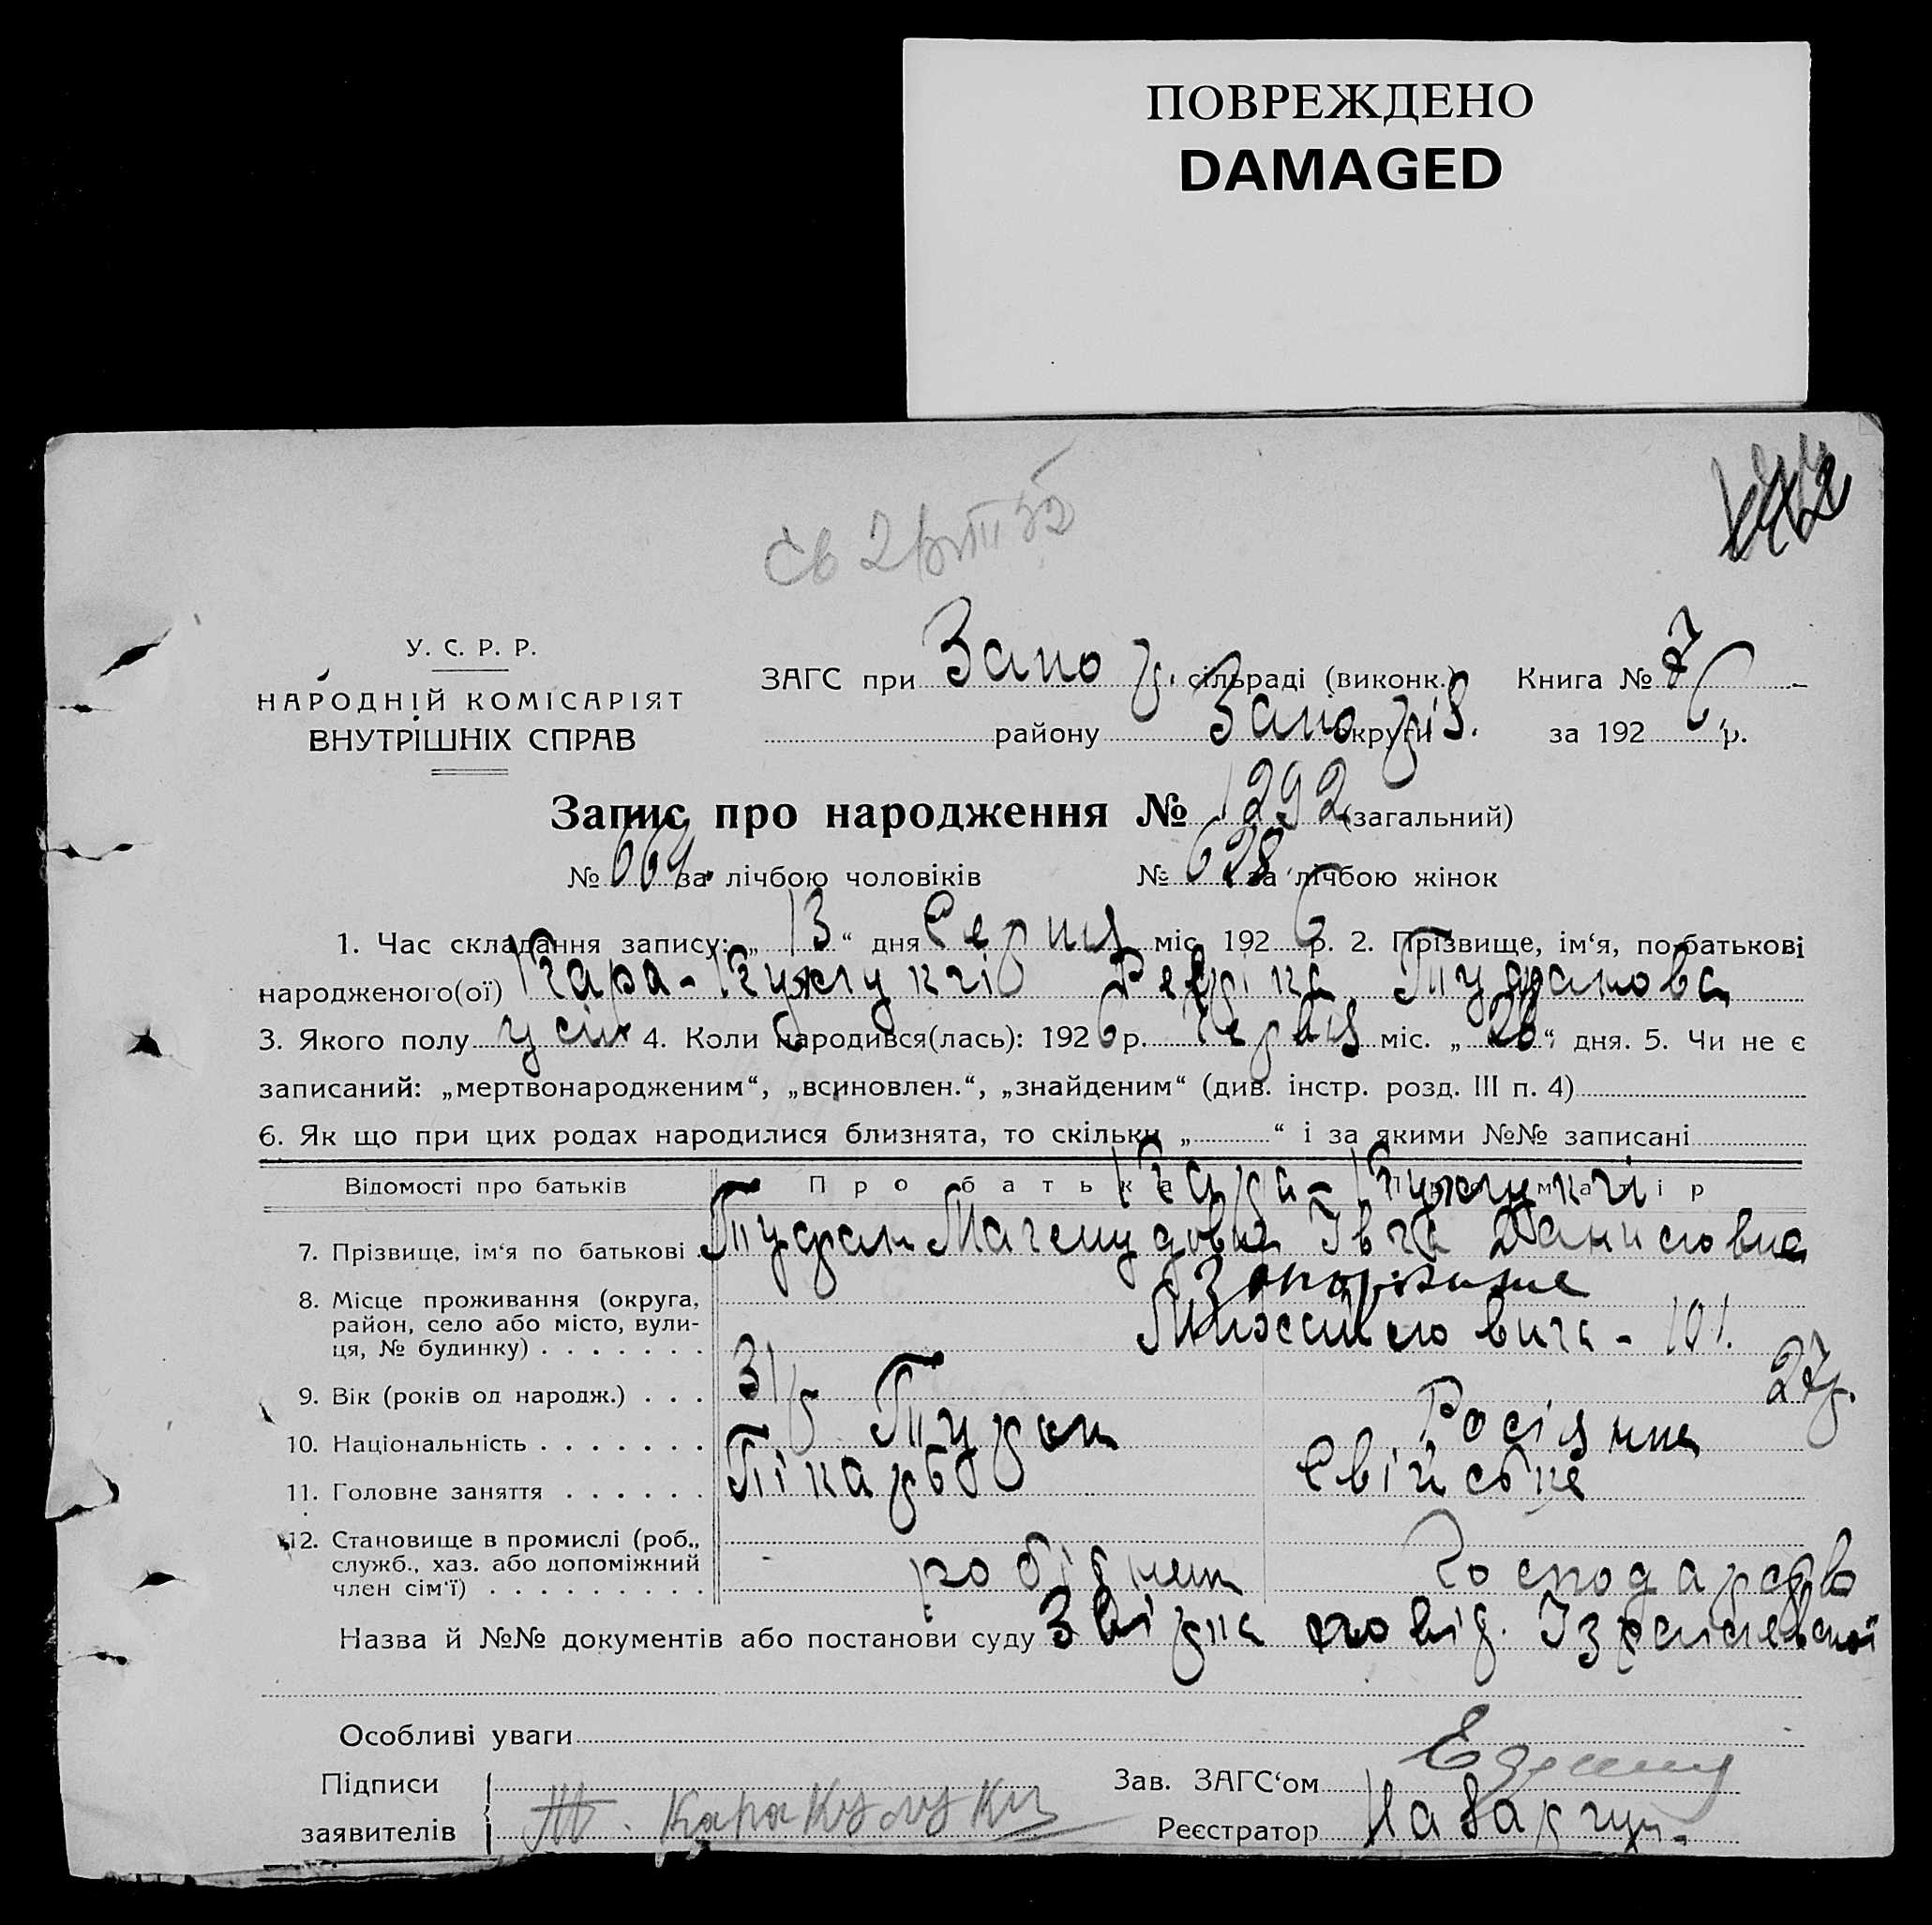 ПОВРЕЖДЕНО
DAMAGED
У. С. Р. Р.
НАРОДНІЙ КОМІСАРІЯТ
ВНУТРІШНІХ СПРАВ
ЗАГС при Запор. сільраді (виконк.) Книга № 7
району Запоріз. округи за 1926 р.
Запис про народження № 1292 (загальний)
№ 664 за лічбою чоловіків № 628 за лічбою жінок
1. Час складання запису: „13“ дня Серпня міс. 1926 р. 2. Прізвище, ім‘я, по-батькові
народженого(ої) Кара-Кужлукчі Туфанова
3. Якого полу 4. Коли народився(лась): 1926 р. Червня міс. „26“ дня. 5. Чи не є
записаний: „мертвонародженим“, „всиновлен.“, „знайденим“ (див. інстр. розд. III п. 4)
6. Як що при цих родах народилися близнята, то скільки „ “ і за якими №№ записані
Відомості про батьків Про батька Про матір
Кара-Кужлукчі
7. Прізвище, ім‘я по батькові Туфан Магемудович Даниловна
8. Місце проживання (округа, район, село або місто, вули-ця, № будинку) Запоріжжя
101.
9. Вік (років од народж.) 31 р 27 р.
10. Національність Турок Росіянка
11. Головне заняття Пікарь Свійське
12. Становище в промислі (роб., служб., хаз. або допоміжний член сім‘ї) робітник Господарство
Назва й №№ документів або постанови суду Звірка
Особливі уваги
Підписи
заявителів Т. Каракужлукчи
Зав. ЗАГС‘ом
Реєстратор